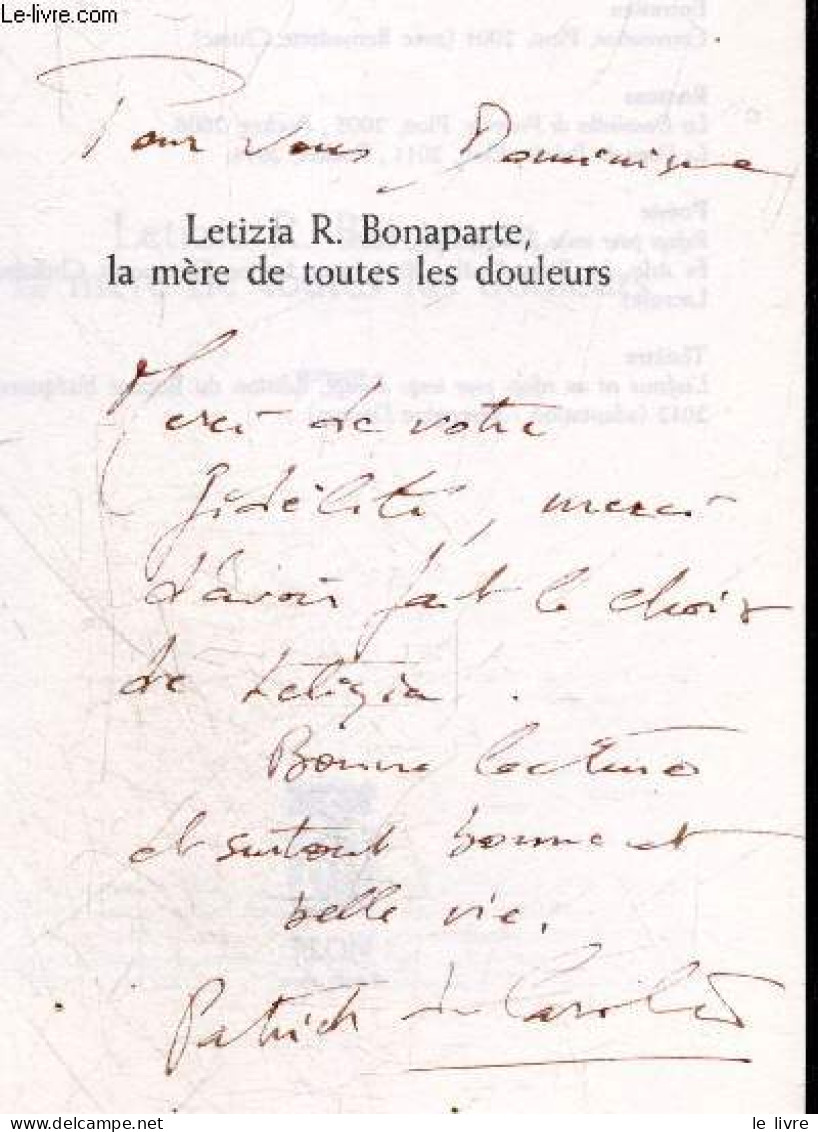 Le-livre.com
Pour vous, Dominique
Letizia R. Bonaparte,
la mère de toutes les douleurs
Merci de votre
fidélité, merci
d'avoir fait le choix
de Letizia.
Bonne lecture
et surtout bonne et
belle vie.
Patrick de Carolis
le livre